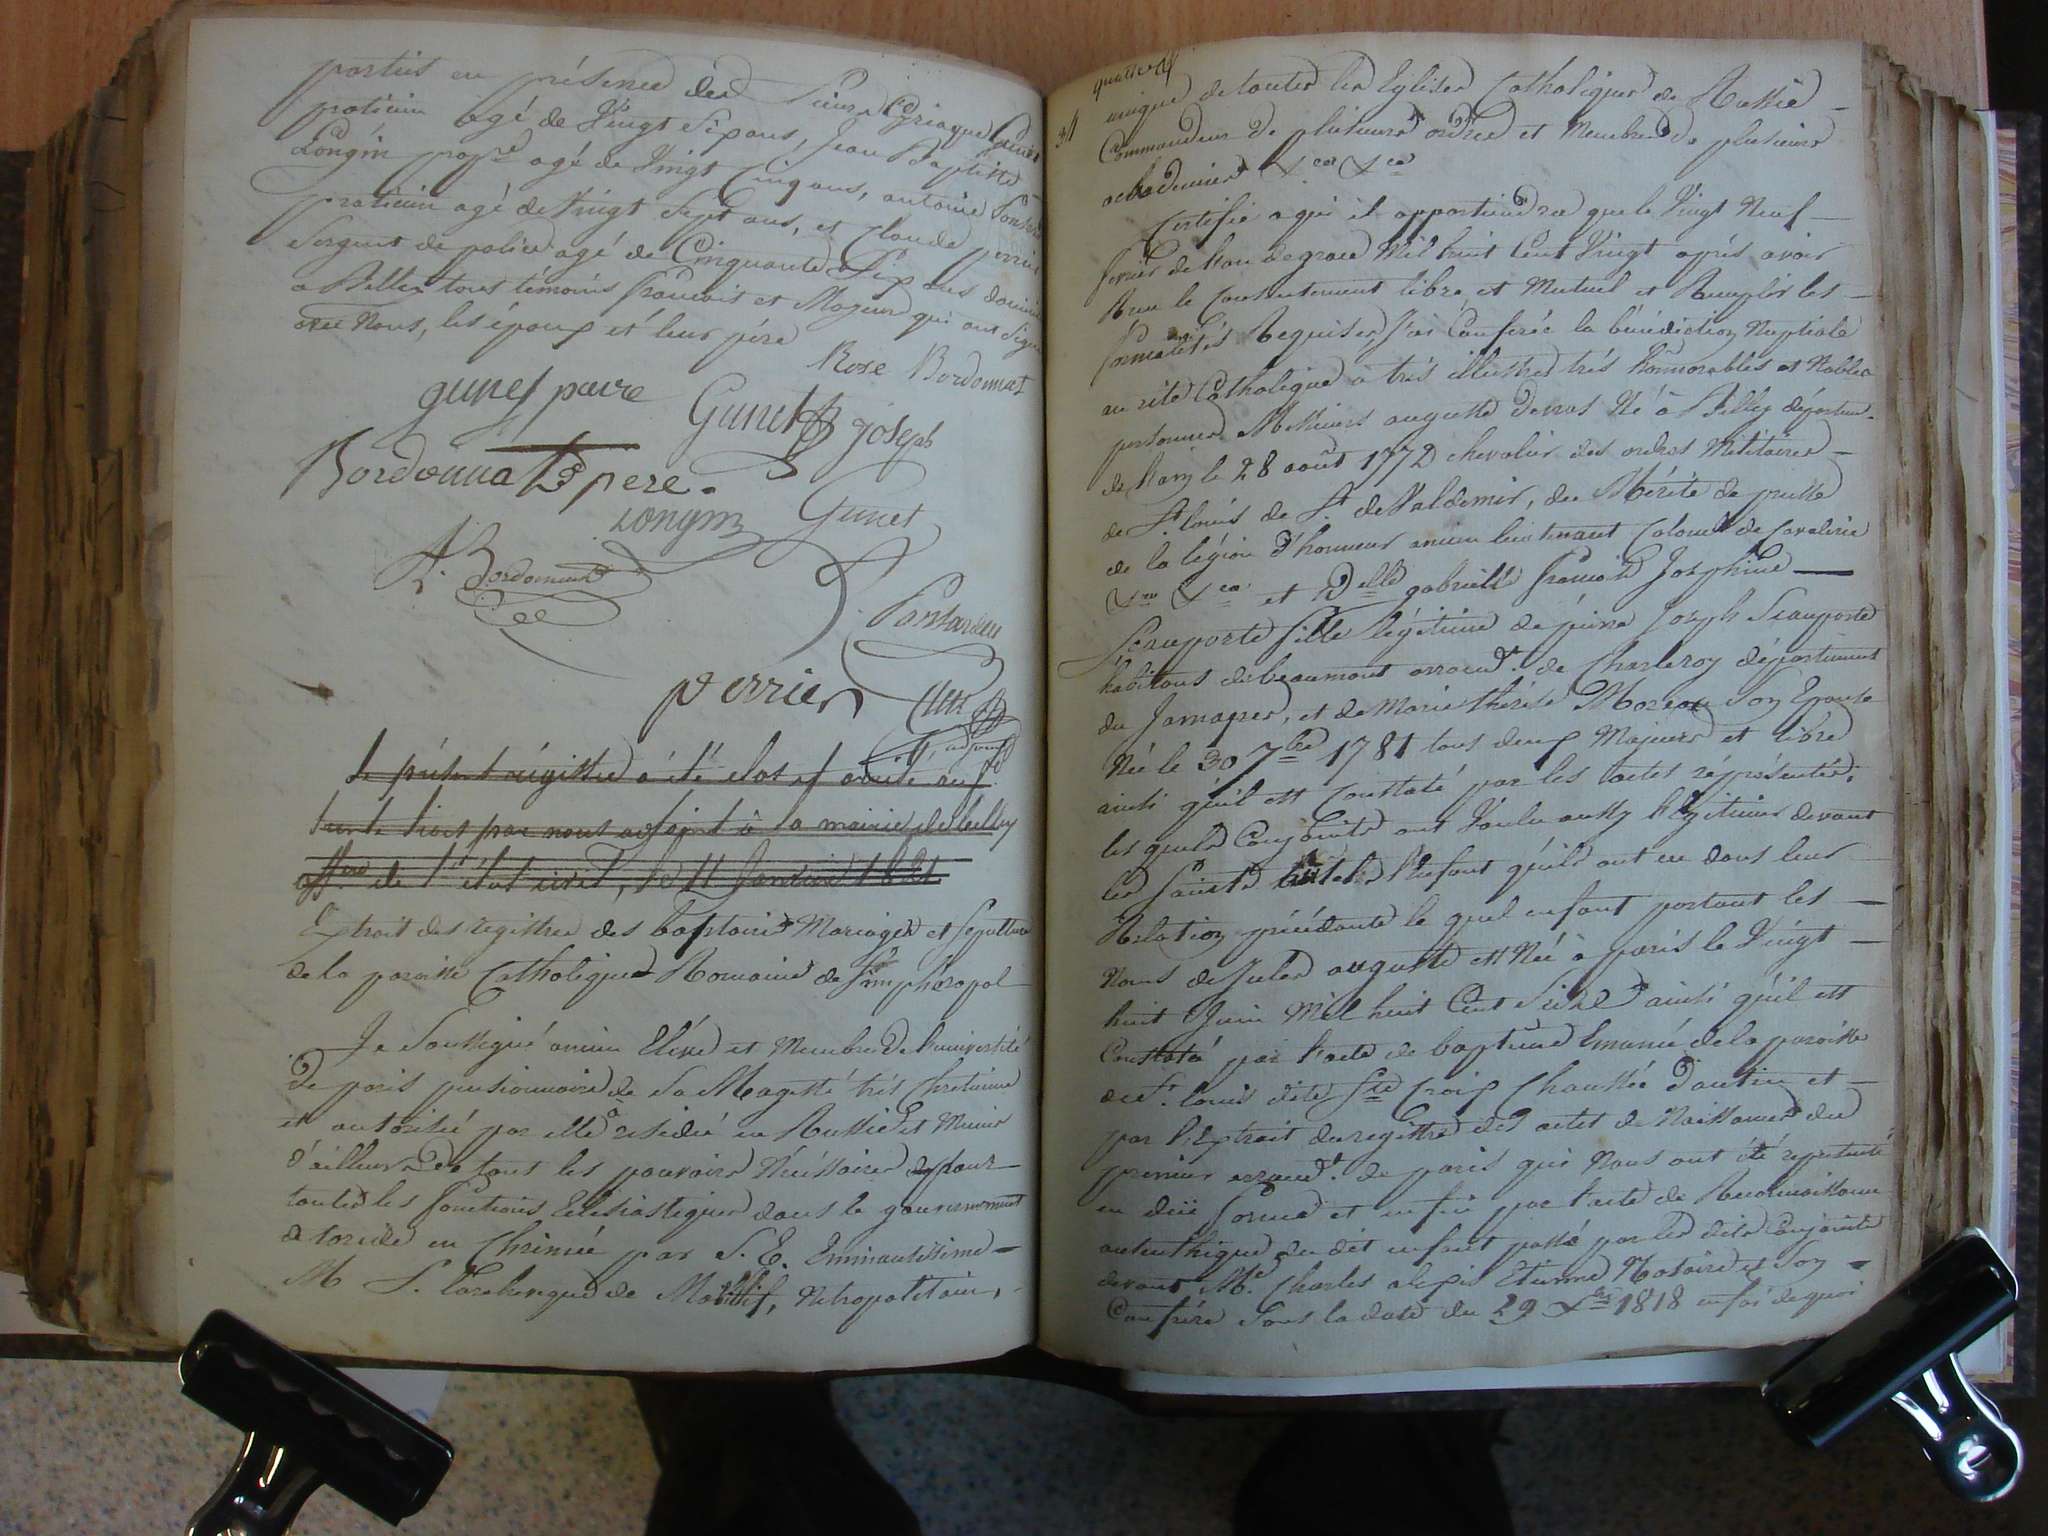 parties en présence des Sieurs Cyriaque Gunet
praticien agé de Vingt Six ans, Jean Baptiste
Longin propre agé de Vingt Cinq ans, antoine
praticien agé de Vingt Sept ans, et Claude perrier
Sergent de police agé de Cinquante Six ans
a Belley tous témoins français et Majeurs qui ont Signé
avec Nous, les époux et leur père
Rose Bordonnat
gunet paire
Gunet joseph
Bordonna père.
Longin
Gunet
A. Bordonnat
Pontardeu
perrier
adjoint
Le présent régistre a été clos et arrêté au
par nous adjoint à la mairie de belley
offer de l'état civil, le 11 Janvier 1821
Extrait des registres des baptaires Mariages et Sepultures
de la paroisse Catholique Romaine de Simphéropol
Je Soussigné ancien Elève et Membre de l'université
de paris pensionnaire de Sa Magesté très chretienne
et autorisé par elle a resider en Russie et Munis
d'ailleurs de tout les pouvoirs Nécéssaires pour
toutes les fonctions Eclésiastiques dans le gouvernement
de toride en Chrimée par S. E. Eminantissime
M S. de Metropolitain,
34
unique de toutes les Eglises Catholiques de Russie
Commandeur de plusieurs ordres et Membre de plusieurs
accademies &ca &ca
Certifie a qui il appartiendra que le Vingt Neuf
fevrier de l'an de grace Mil huit Cent Vingt après avoir
Recu le Consentement libre et Mutuel et Remplir les
formalités Requises J'ai Conferée la bénédiction Nuptiale
au rite Catholique à très illustres très honnorables et Nobles
personnes Messieurs auguste Né à Belley département
de l'ain le 28 août 1772 chevalier des ordres Militaires
de St. louis de St. de Valdemir, du Mérite de prusse
de la légion d'honneur ancien lieutenant Colonel de Cavalerie
&ca &ca et Delle gabrielle françoise Joséphine
fille légitime de pierre Joseph
habitans de beaumont arrondt. de Charleroy département
du Jamapes, et de Marie thérèse Moreau Son Epouse
Née le 30 7bre 1781 tous deux Majeurs et libre
ainsi qu'il est Constaté par les actes réprésentés,
les quels Conjoints ont Voulu aussy légitimer devant
les Saints autels l'Enfant qu'ils ont eu dans leur
Relation précédante le quel enfant portant les
Noms de Jules auguste est Né à paris le Vingt
huit Juin Mil huit Cent Seize ainsi qu'il est
Constaté par l'acte de baptême Emané de la paroisse
de St. louis dite Ste Croix Chaussée d'antin et
par l'Extrait du registre des actes de Naissances du
premier arrondt. de paris qui Nous ont été representé
en due forme et enfin par l'acte de Reconnaissance
autenthique du dit enfant passé par les dits Conjoints
devant Me. Charles alexis Etienne Notaire et Son
Confrère Sous la date du 29 Xbre 1818 en foi de quoi